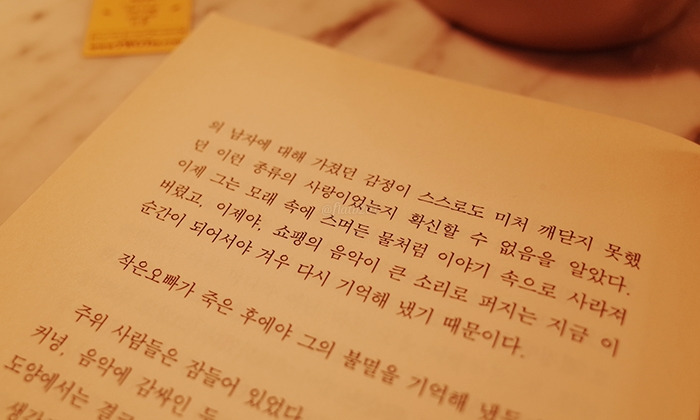 의 남자에 대해 가졌던 감정이 스스로도 미처 깨닫지 못했
던 이런 종류의 사랑이었는지 확신할 수 없음을 알았다.
이제 그는 모래 속에 스며든 물처럼 이야기 속으로 사라져
버렸고, 이제야, 쇼팽의 음악이 큰 소리로 퍼지는 지금 이
순간이 되어서야 겨우 다시 기억해 냈기 때문이다.
작은오빠가 죽은 후에야 그의 불멸을 기억해 냈듯
주위 사람들은 잠들어 있었다
커녕, 음악에 감싸인
도양에서는